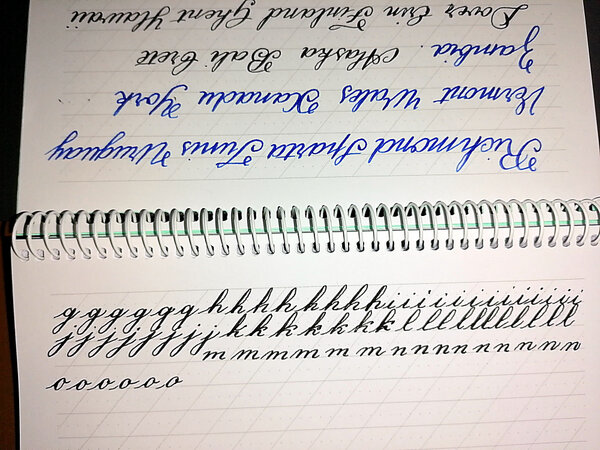 Richmond Sparta Tunis Uruguay
Vermont Wales Xanadu York
Zambia. Alaska Bali Crete
Dover Erin Finland Ghent Hawaii
g g g g g g h h h h h h h h i i i i i i i i i i i i
j j j j j j j j k k k k k k k l l l l l l l l l l l
m m m m m m n n n n n n n n n
o o o o o o